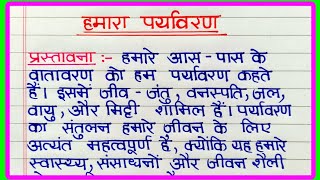 हमारा पर्यावरण
प्रस्तावना :- हमारे आस-पास के
वातावरण को हम पर्यावरण कहते
हैं। इसमें जीव-जंतु, वनस्पति, जल,
वायु, और मिट्टी शामिल हैं। पर्यावरण
का संतुलन हमारे जीवन के लिए
अत्यंत महत्वपूर्ण है, क्योंकि यह हमारे
स्वास्थ्य, संसाधनों और जीवन शैली